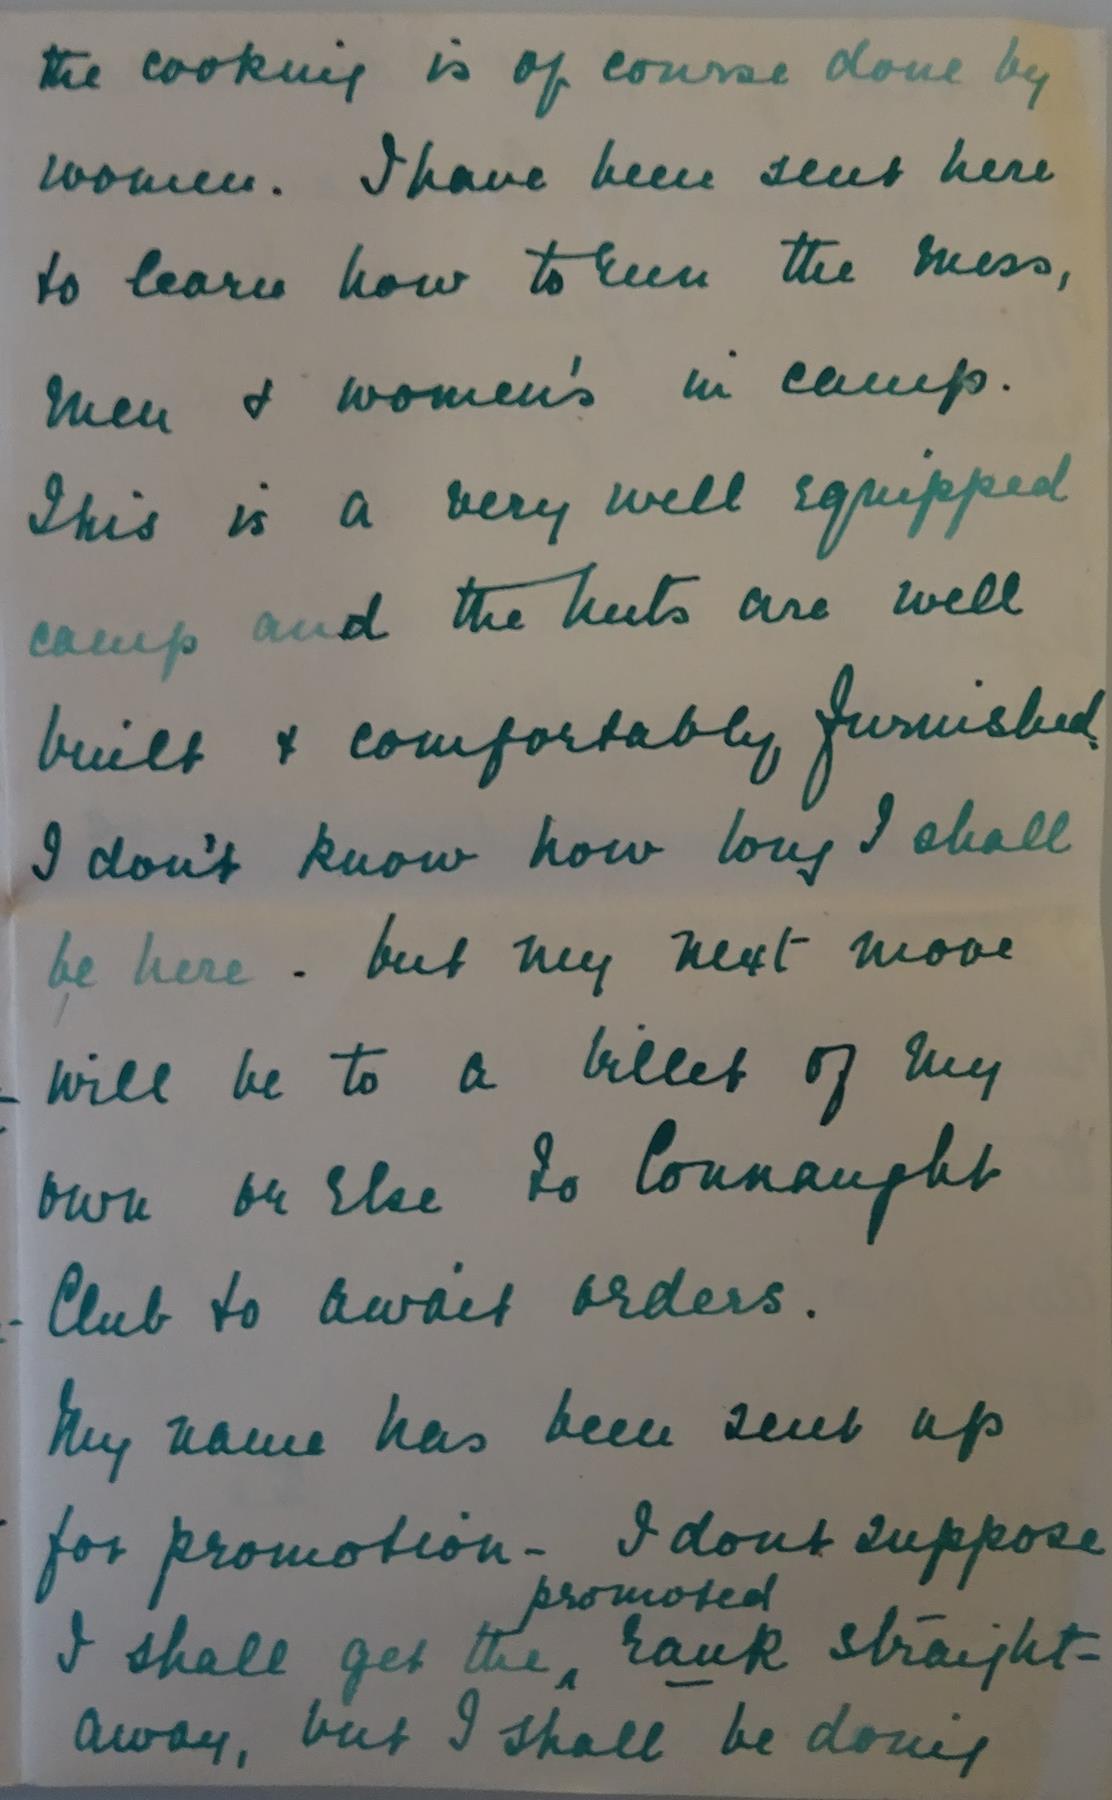 the cooking is of course done by
women. I have been sent here
to learn how to run the mess,
men & women's in camp.
This is a very well equipped
camp and the huts are well
built & comfortably furnished.
I don't know how long I shall
be here - but my next move
will be to a billet of my
own or else to Connaught
Club to await orders.
My name has been sent up
for promotion - I dont suppose
promoted
I shall get the ^ rank straight-
away, but I shall be doing